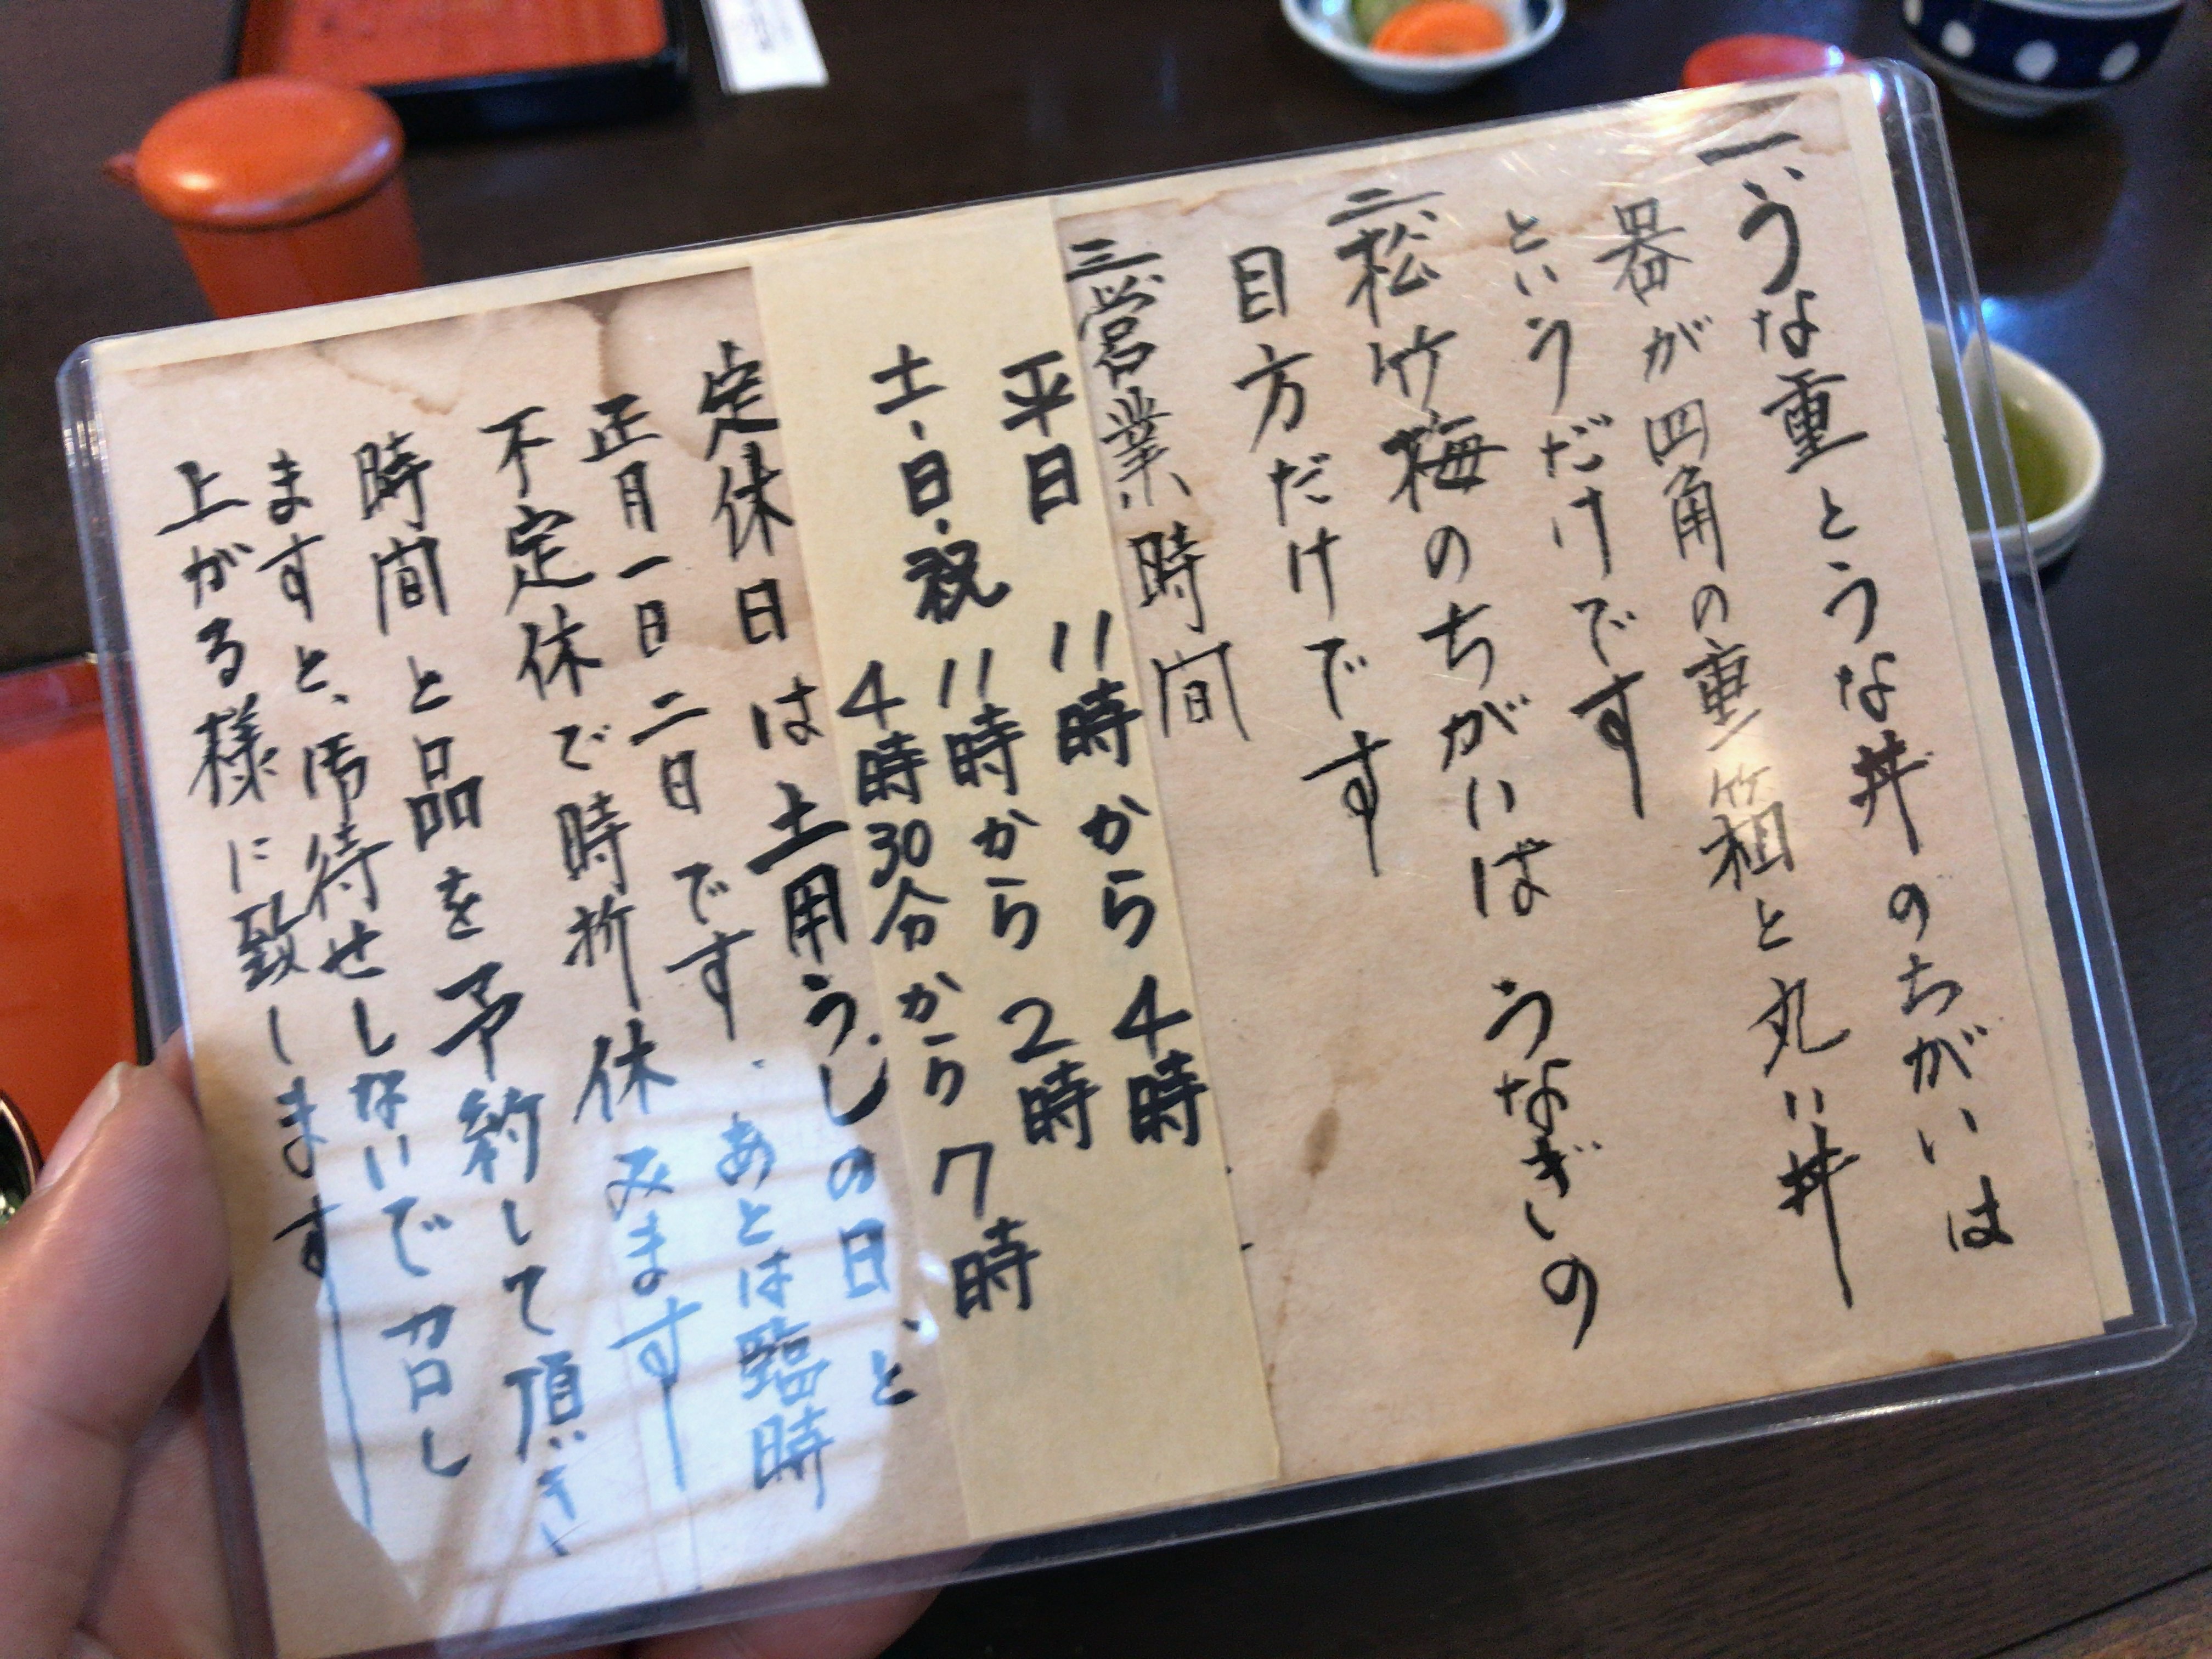 一、うな重とうな丼のちがいは
器が四角の重箱と丸い丼
というだけです
二、松竹梅のちがいは うなぎの
目方だけです
三、営業時間
平日 11時から4時
土・日・祝 11時から2時
4時30分から7時
定休日は土用うしの日、と
正月一日二日です、あとは臨時
不定休で時折休みます
時間と品を予約して頂き
ますと、お待せしないで召し
上がる様に致します